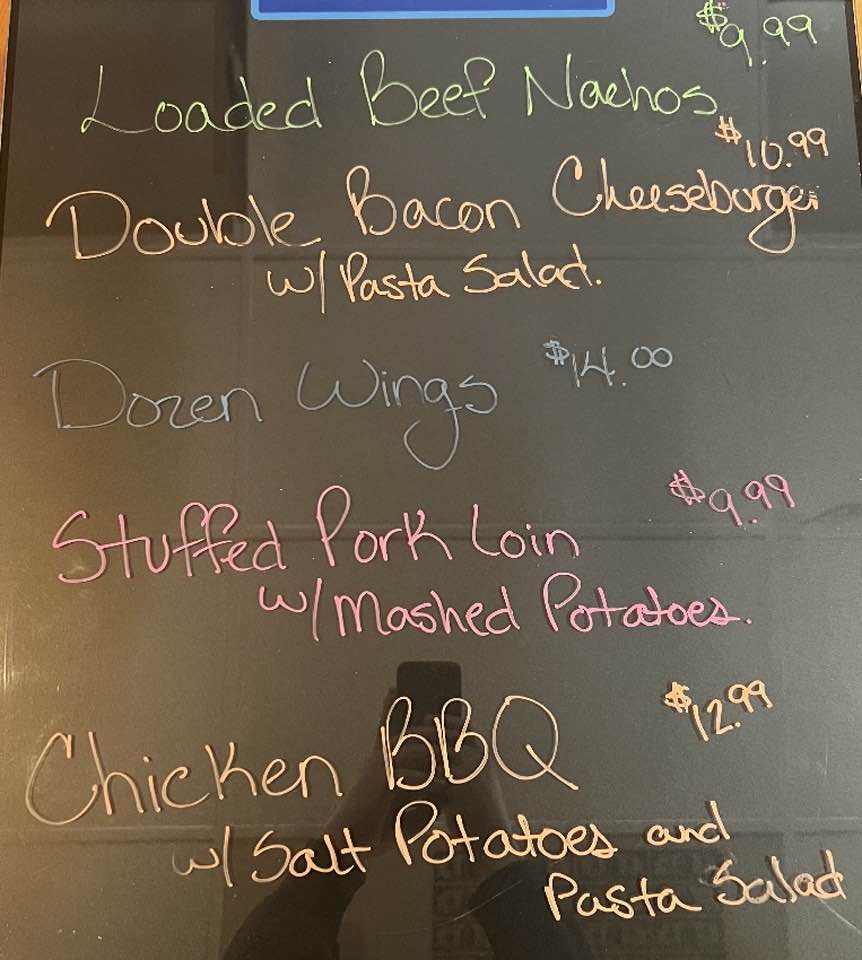 $9.99
Loaded Beef Nachos
$10.99
Double Bacon Cheeseburger
w/ Pasta Salad.
Dozen Wings $14.00
$9.99
Stuffed Pork Loin
w/ Mashed Potatoes.
$12.99
Chicken BBQ
w/ Salt Potatoes and
Pasta Salad